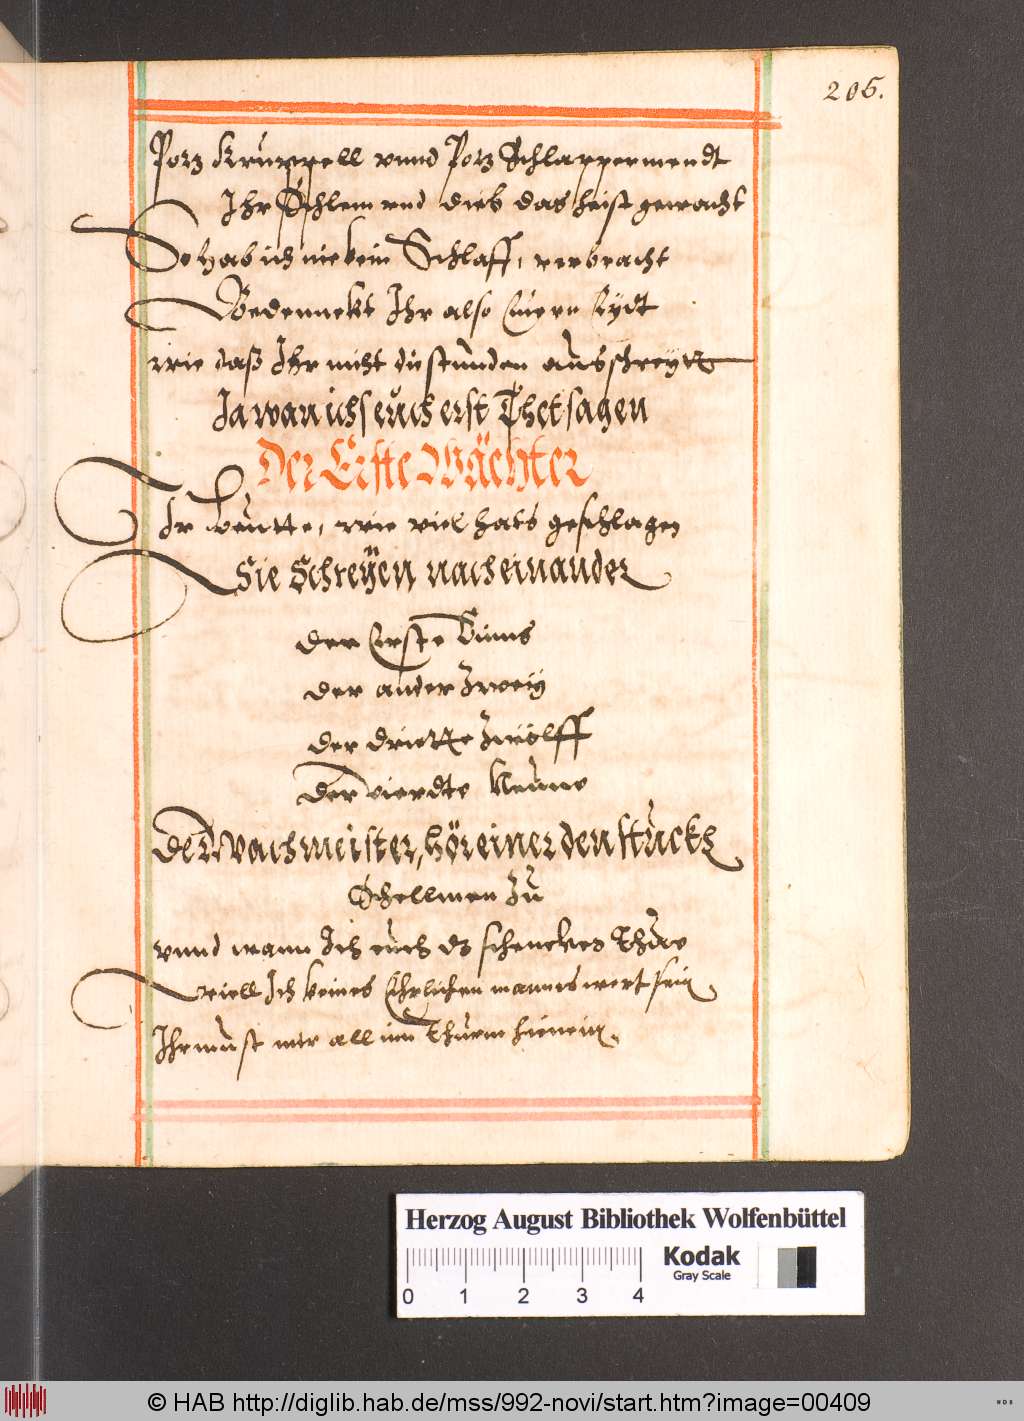 205.
Potz Krüppell vnnd Potz Schlapperment
Ihr Schlem vnd dieb das heist gewacht
So hab ich nie kein Schlaff, verbracht
Bedennckt Ihr also Euern Eydt
wie daß Ihr nicht die stunden ausschreytt
Ja wan ichs eůch erst Thet sagen
Der Erste Wächter
Ir Leutte, wie viel hats geschlagen
Sie Schreÿen nach einander
der Erste Eins
der ander Zweÿ
der dritte Zwölff
der vierdte Neune
Der Wachmeister, hör einer den stückh
Schellmen Zu
vnnd wann Ich euch dz schenckes Thue
will Ich keines Ehrlichen mannes wert sein,
Ihr must mir all im Thurm hienein,
Herzog August Bibliothek Wolfenbüttel
Kodak
Gray Scale
0 1 2 3 4
© HAB http://diglib.hab.de/mss/992-novi/start.htm?image=00409